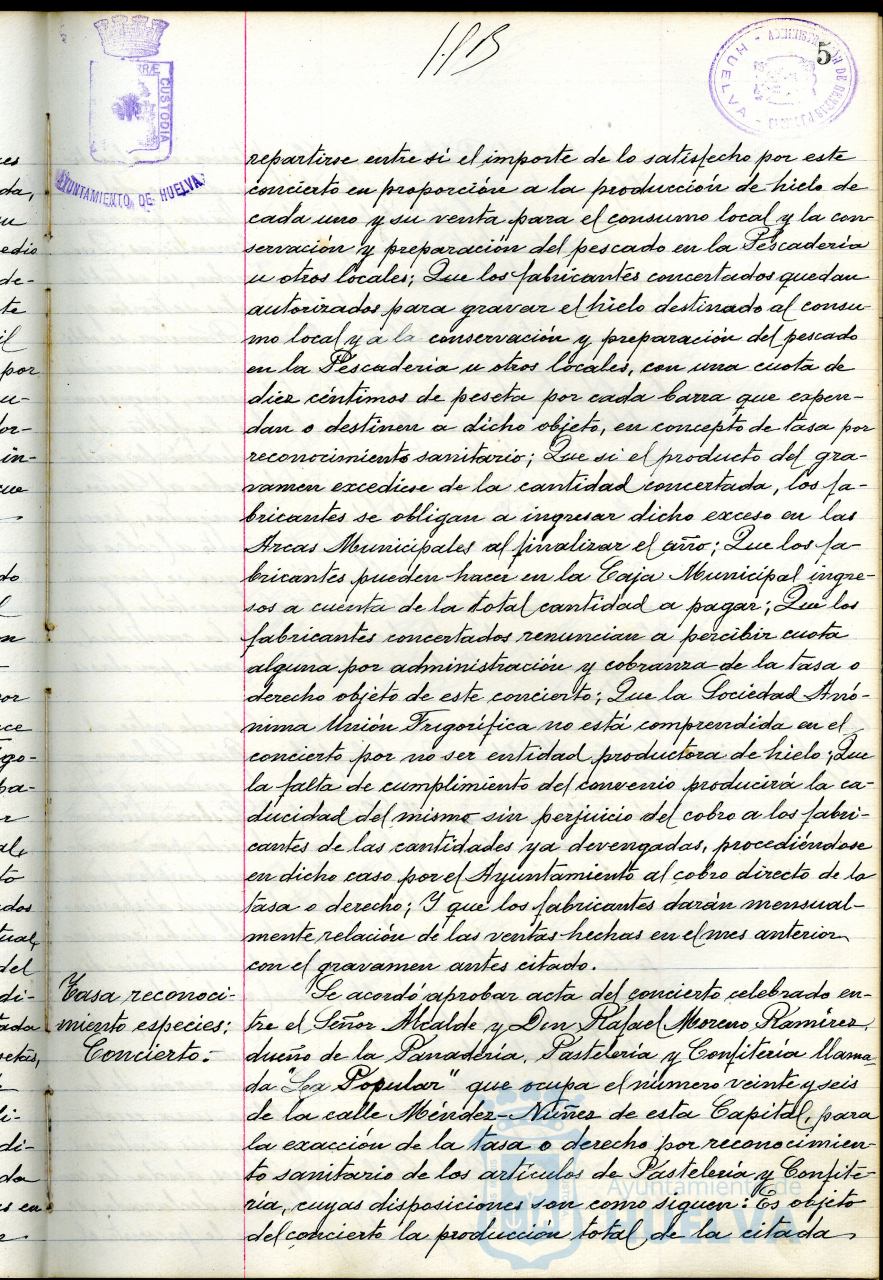 5
CUSTODIA
AYUNTAMIENTO DE HUELVA
HUELVA
repartirse entre sí el importe de lo satisfecho por este
concierto en proporción a la producción de hielo de
cada uno y su venta para el consumo local y la con-
servación y preparación del pescado en la Pescadería
u otros locales; Que los fabricantes concertados quedan
autorizados para gravar el hielo destinado al consu-
mo local y a la conservación y preparación del pescado
en la Pescaderia u otros locales, con una cuota de
diez céntimos de peseta por cada barra que expen-
dan o destinen a dicho objeto, en concepto de tasa por
reconocimiento sanitario; Que si el producto del gra-
vamen excediese de la cantidad concertada, los fa-
bricantes se obligan a ingresar dicho exceso en las
Arcas Municipales al finalizar el año; Que los fa-
bricantes pueden hacer en la Caja Municipal ingre-
sos a cuenta de la total cantidad a pagar; Que los
fabricantes concertados renuncian a percibir cuota
alguna por administración y cobranza de la tasa o
derecho objeto de este concierto; Que la Sociedad Anó-
nima Unión Frigorífica no está comprendida en el
concierto por no ser entidad productora de hielo; Que
la falta de cumplimiento del convenio producirá la ca-
ducidad del mismo sin perjuicio del cobro a los fabri-
cantes de las cantidades ya devengadas, procediéndose
en dicho caso por el Ayuntamiento al cobro directo de la
tasa o derecho; Y que los fabricantes darán mensual-
mente relación de las ventas hechas en el mes anterior
con el gravamen antes citado.
Tasa reconoci-
miento especies:
Concierto.-
Se acordó aprobar acta del concierto celebrado en-
tre el Señor Alcalde y Don Rafael Moreno Ramírez,
dueño de la Panadería, Pastelería y Confitería llama-
da "La Popular" que ocupa el número veinte y seis
de la calle Méndez-Núñez de esta Capital, para
la exacción de la tasa o derecho por reconocimien-
to sanitario de los artículos de Pastelería y Confite-
ría, cuyas disposiciones son como siguen: Es objeto
del concierto la producción total de la citada
Ayuntamiento de
HUELVA